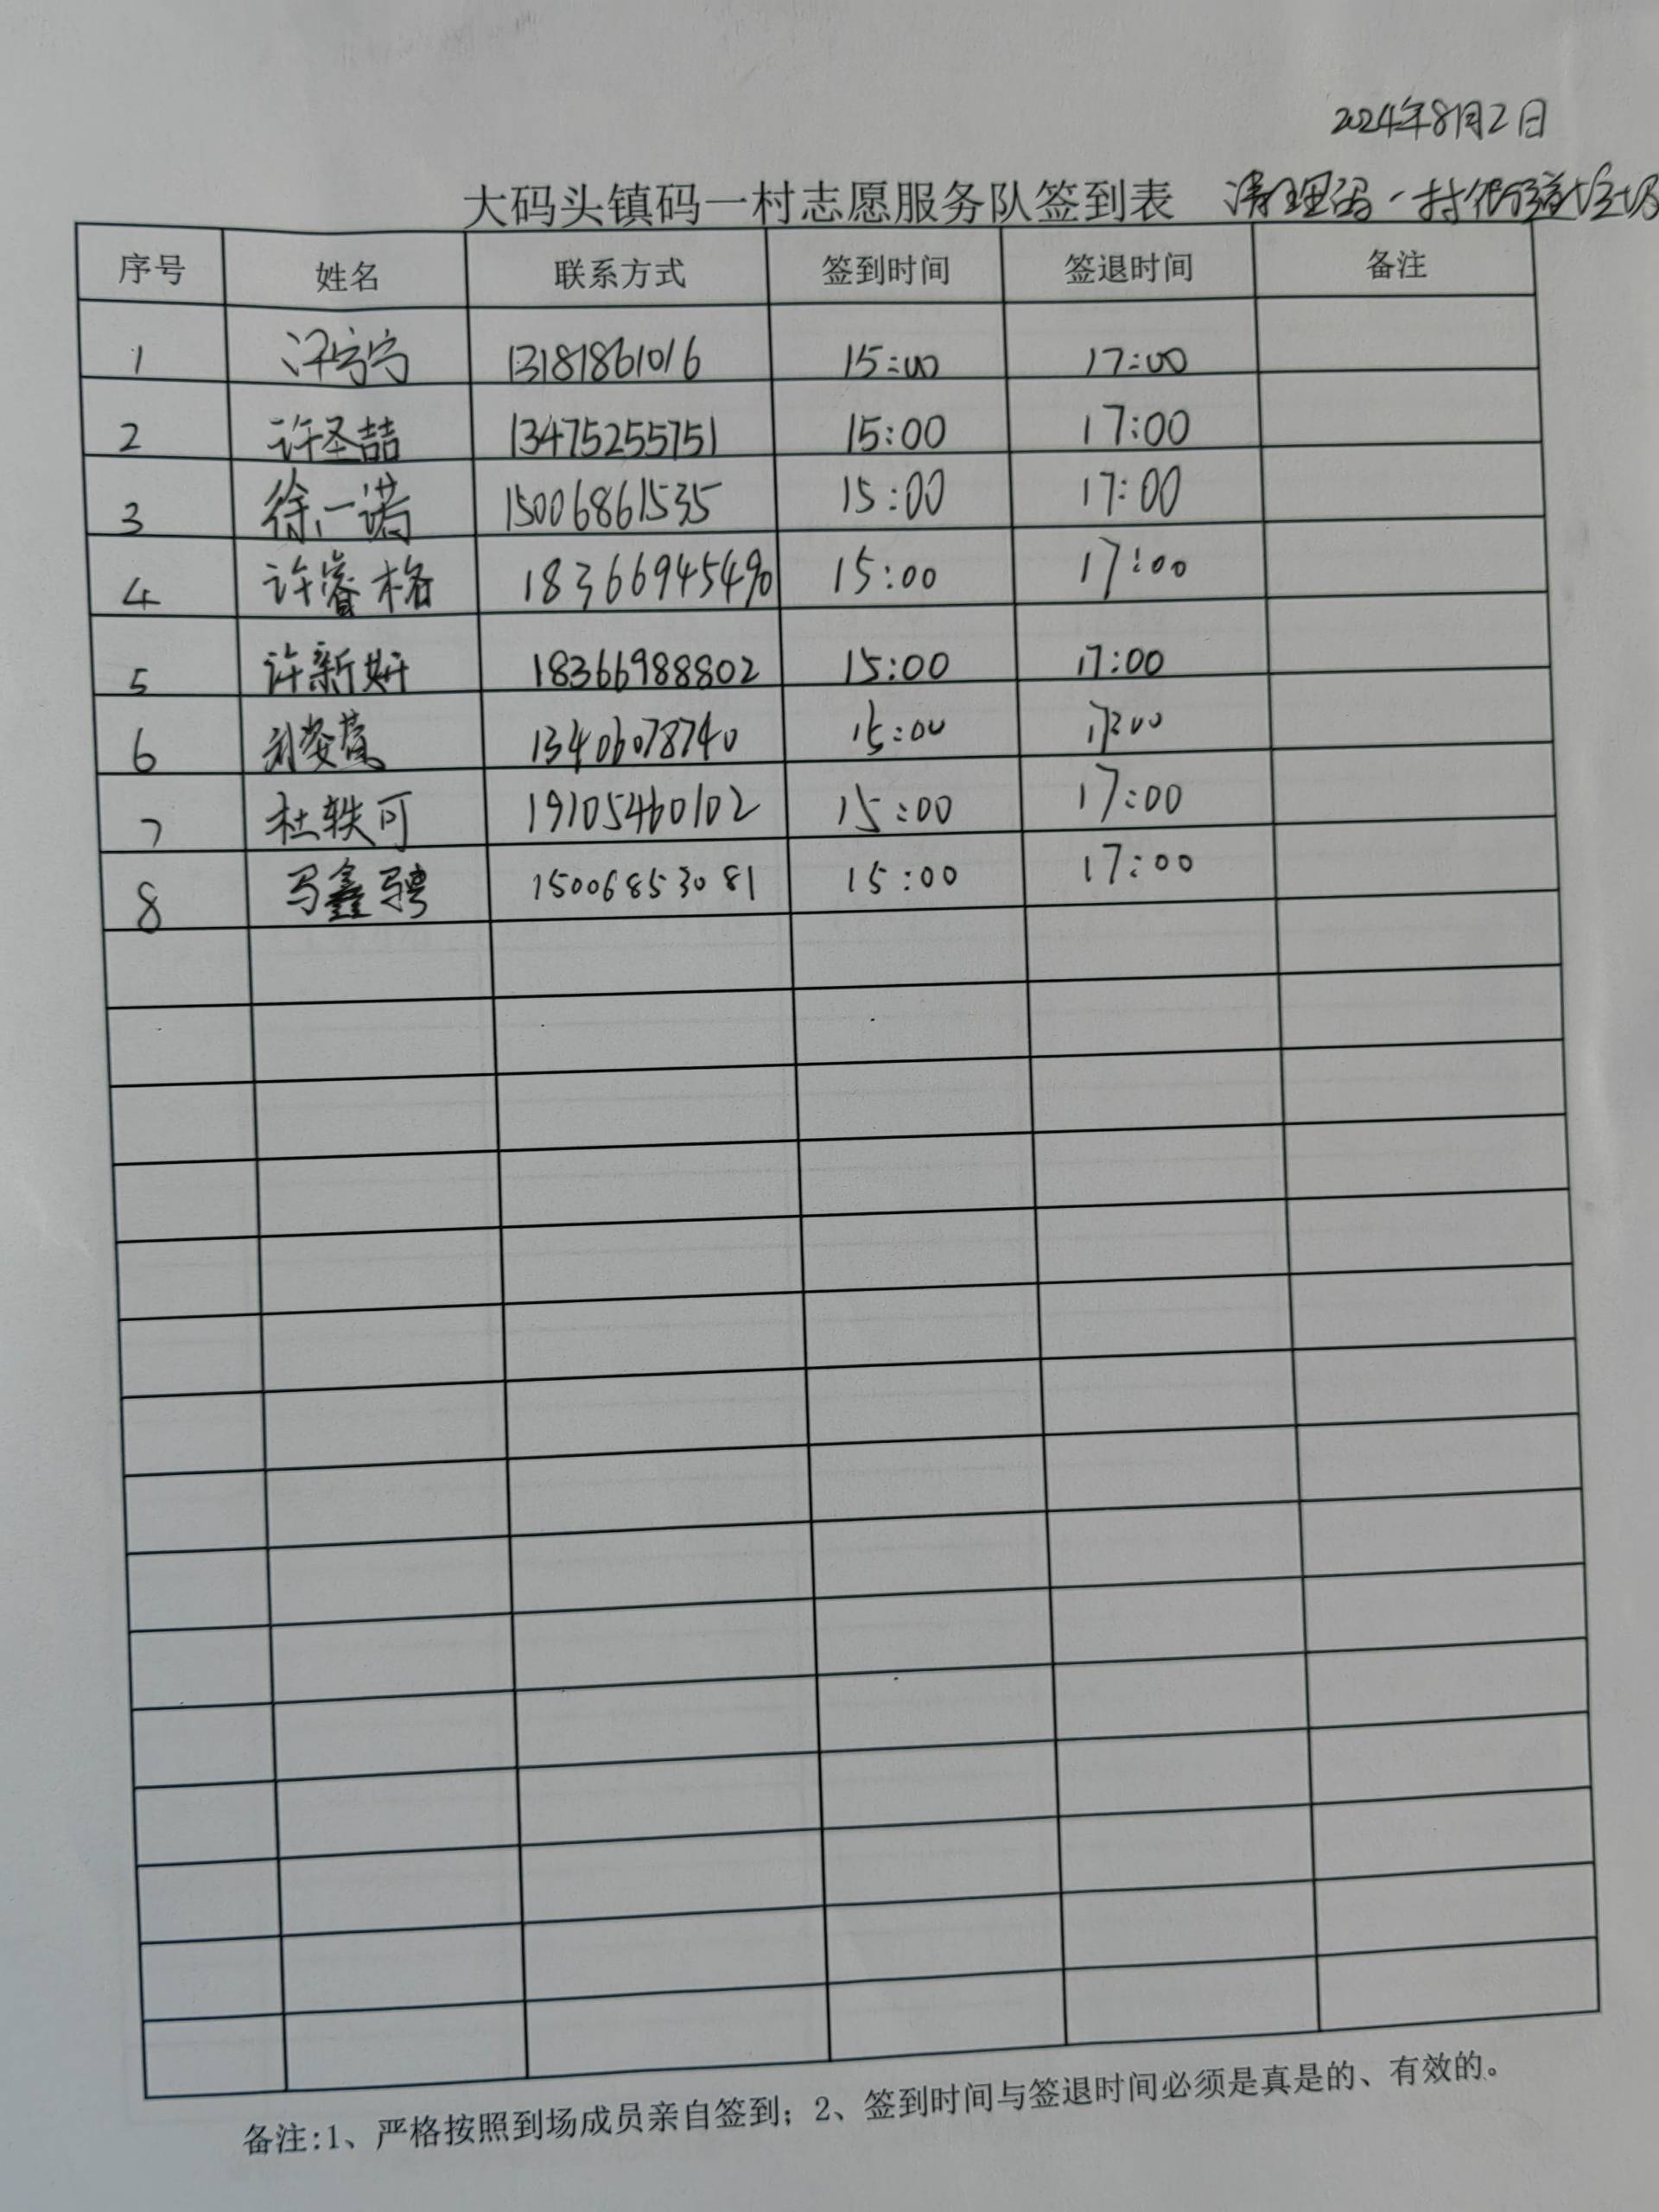 2024年8月2日
大码头镇码一村志愿服务队签到表 清理码一村街道垃圾
序号 姓名 联系方式 签到时间 签退时间 备注
1 宁宁 13181861016 15:00 17:00
2 许圣喆 13475255751 15:00 17:00
3 徐一诺 15006861535 15:00 17:00
4 许睿格 18366945490 15:00 17:00
5 许新妍 18366988802 15:00 17:00
6 13406078740 15:00 17:00
7 杜轶可 19105460102 15:00 17:00
8 马鑫骋 15006853081 15:00 17:00
备注:1、严格按照到场成员亲自签到；2、签到时间与签退时间必须是真是的、有效的。